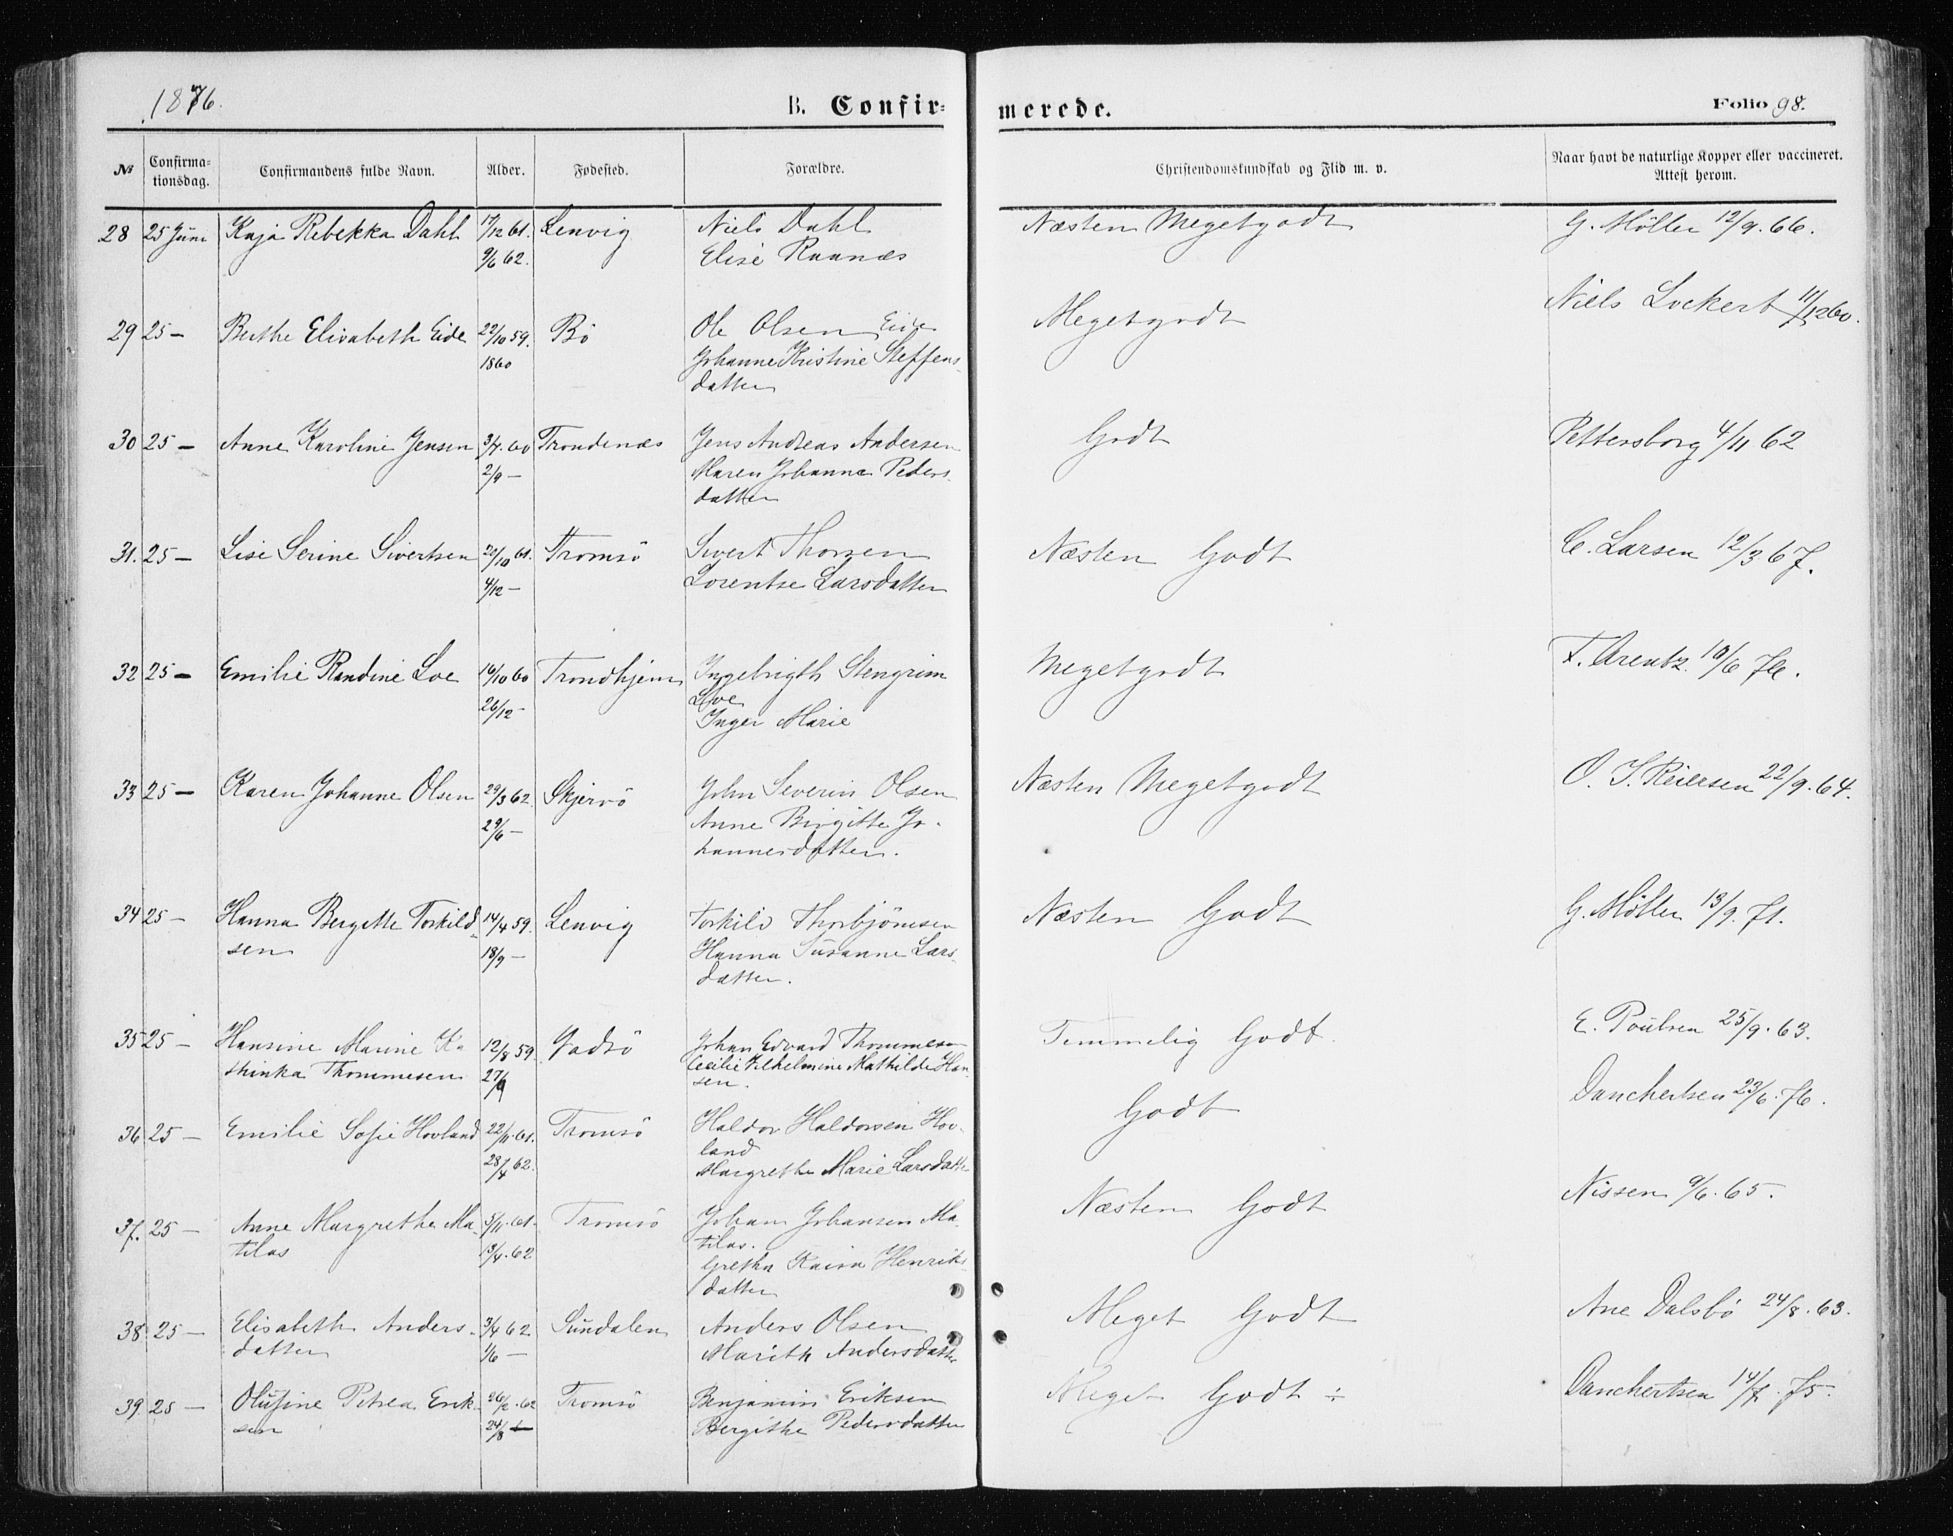 1876.
B. Confir-
merede.
Folio 98.
№
Confirma-
tionsdag.
Confirmandens fulde Navn.
Alder.
Fødested.
Forældre.
Christendomskundskab og Flid m. v.
Naar havt de naturlige Kopper eller vaccineret.
Attest herom.
28 25 Juni Kaja Rebekka Dahl 17/12 61. Lenvig Niels Dahl Næsten Megetgodt G. Møller 12/9. 66.
9/6 62. Elise Raanæs
29 25 — Berthe Elisabeth Eide 22/10 59. Bö Ole Olsen Eide Megetgodt Niels Lockert
1860 Johanne Kristine Steffens-
datter
30 25 — Anne Karoline Jensen 3/4. 60 Trondenæs Jens Andreas Andersen Godt Pettersborg 4/11 62
2/9 — Maren Johanne Peders-
datter
31. 25 — Lise Serine Sivertsen 20/10 61. Tromsö Sivert Thorsen Næsten Godt C. Larsen 12/3 67.
4/12 — Lorentse Larsdatter
32 25 — Emilie Randine Loe 16/10 60 Trondhjem Ingebrigth Stengrim Megetgodt F. Arentz. 10/6 76.
26/12 — Loe
Inger Marie
33 25 — Karen Johanne Olsen 29/3 62. Skjervö John Severin Olsen Næsten Megetgodt O. S. Reiersen 22/9. 64.
29/6 — Anne Birgitte Jo-
hannesdatter.
34 25 — Hanna Bergette Torkild- 14/4 59. Lenvig Torkild Thorbjörnsen Næsten Godt G. Møller 13/9. 71.
sen 18/9 — Hanna Susanne Lars-
datter.
35 25 — Hansine Marine Ka- 12/8 59. Vadsö Johan Edvard Thommesen Temmelig Godt. E. Poulsen 25/9. 63.
thinka Thommesen 27/9 Cecilie Vilhelmine Mathilde Han-
sen.
36 25 — Emilie Sofie Hovland 22/11. 61. Tromsö Haldor Haldorsen Hov- Godt Danchertsen 23/6. 76.
28/4 62. land
Margrethe Marie Larsdatter
37. 25 — Anne Margrethe Ma- 5/11. 61. Tromsö Johan Johansen Ma- Næsten Godt Nissen 9/6. 65.
tilas 13/4. 62 tilas.
Grethe Kaisa Henriks-
datter
38. 25 — Elisabeth Anders- 3/4 62 Sundalen Anders Olsen Meget Godt Ane Dalsbö 24/8. 63.
datter 1/6 — Marith Andersdatter
39. 25 — Olufine Petrea Erik- 26/2. 62 Tromsö Benjamin Eriksen Meget Godt ÷ Danchertsen 14/7. 75.
sen 24/8 — Bergithe Pedersdatter